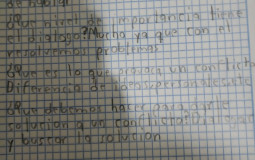 de hablar
¿Que nivel de importancia tiene
el dialogo? Mucha ya que con el
resolvemos problemas
¿Que es lo que provoca un conflicto
Diferencia de
¿Que debemos hacer para darle
solucion a un conflicto? Dialogar
y buscar la solucion